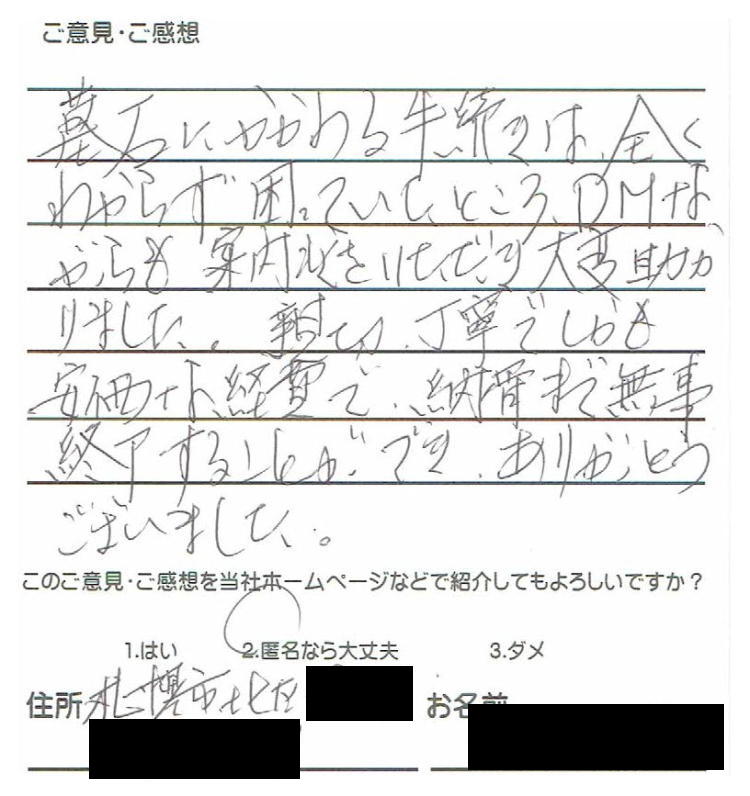 ご意見・ご感想
墓石にかかわる手続きは、全く
わからず困っていしところ、DMな
がらも案内状をいただき大変助か
りました。親切、丁寧でしかも
安価な経費で、納骨まで無事
終了することができ、ありがとう
ございました。
このご意見・ご感想を当社ホームページなどで紹介してもよろしいですか？
1.はい 2.匿名なら大丈夫 3.ダメ
住所 札幌市北区 お名前